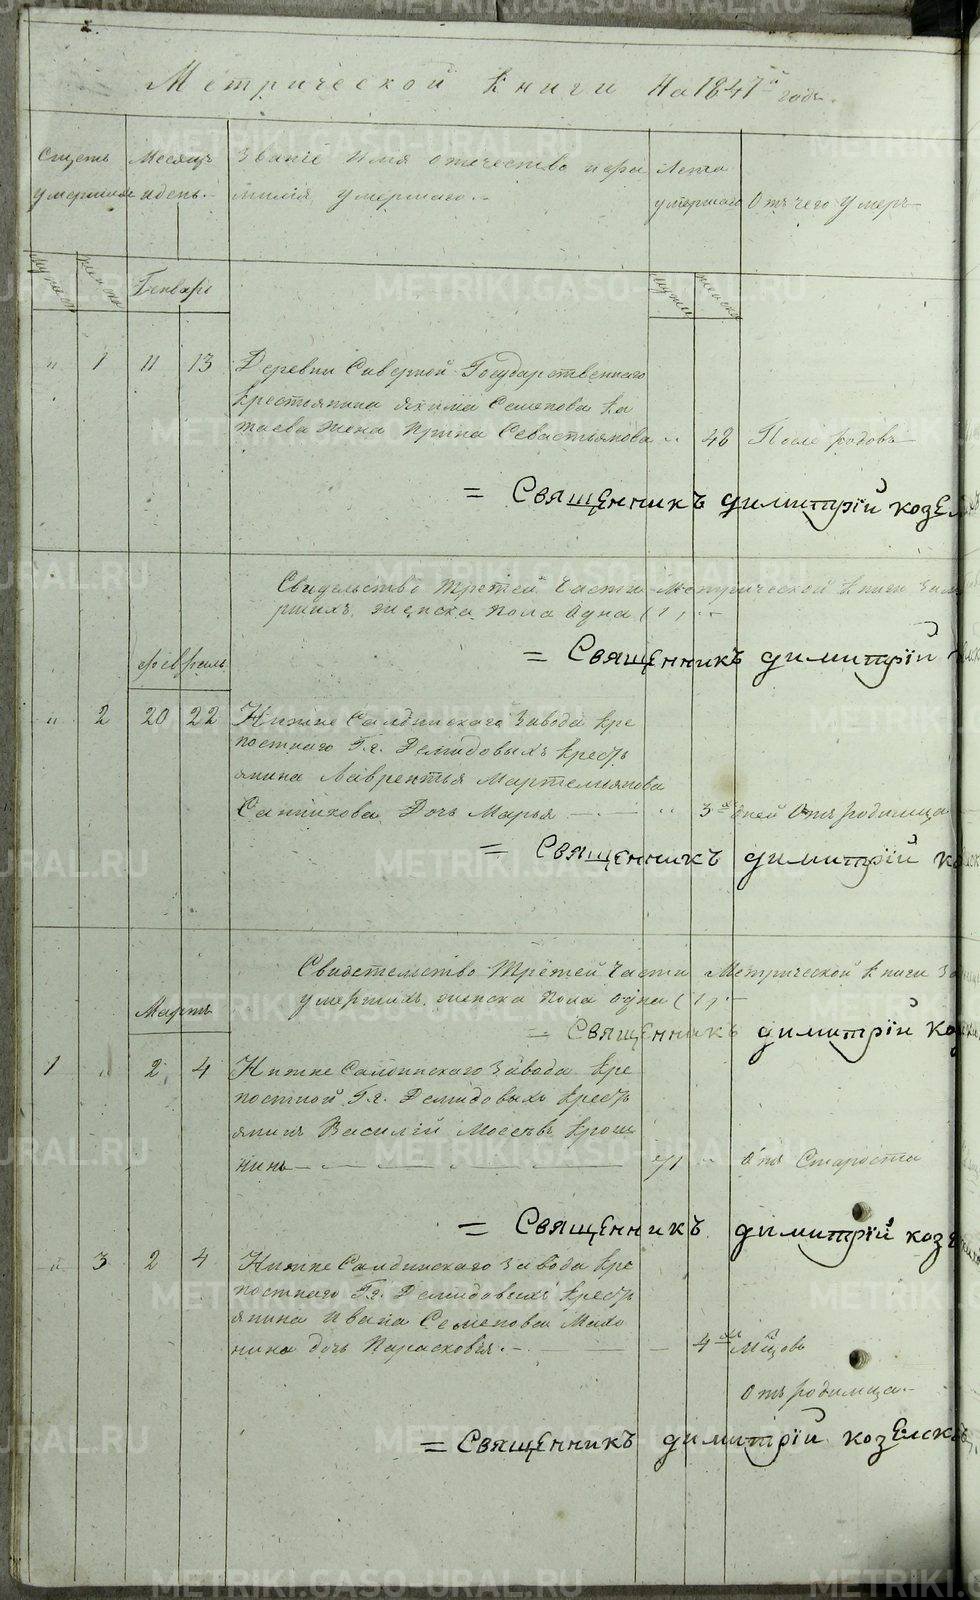 Метрической книги На 1847й годъ.
Счетъ умершихъ
Месяцъ и день.
Званіе Имя отечество и фамилія умершаго.
Лета умершаго
Отъ чего умеръ
Генварь
" 1 11 13 Деревни Северной Государственнаго
крестьянина Якима Семенова Ка
таева жена Ирина Севастьянова " 48 После родовъ
= Священникъ Димитрій Козел
Свидетельство Третей Части Метрической Книги
рших женска пола одна (1)
= Священникъ Димитрій
Февраль
" 2 20 22 Нижне Салдинскаго Завода Кре
постнаго Гг. Демидовыхъ Кресть
янина Лаврентья Мартемьянова
Дочь Марья " 3 дней Отъ родимца
= Священникъ Димитрій Ко
Свидетельство Третей Части Метрической Книги
умершихъ женска пола одна (1)
= Священникъ Димитрій Ко
Мартъ
1 " 2 4 Нижне Салдинскаго Завода Кре
постной Гг. Демидовыхъ Кресть
янинъ Василій Мосеевъ
71 " Отъ Старости
= Священникъ Димитрій Козе
" 3 2 4 Нижне Салдинскаго Завода Кре
постнаго Гг. Демидовыхъ Кресть
янина Ивана Семенова Мало
нина дочь Парасковья. 4 м-цовъ
Отъ родимца
= Священникъ Димитрій Козелск
METRIKI.GASO-URAL.RU